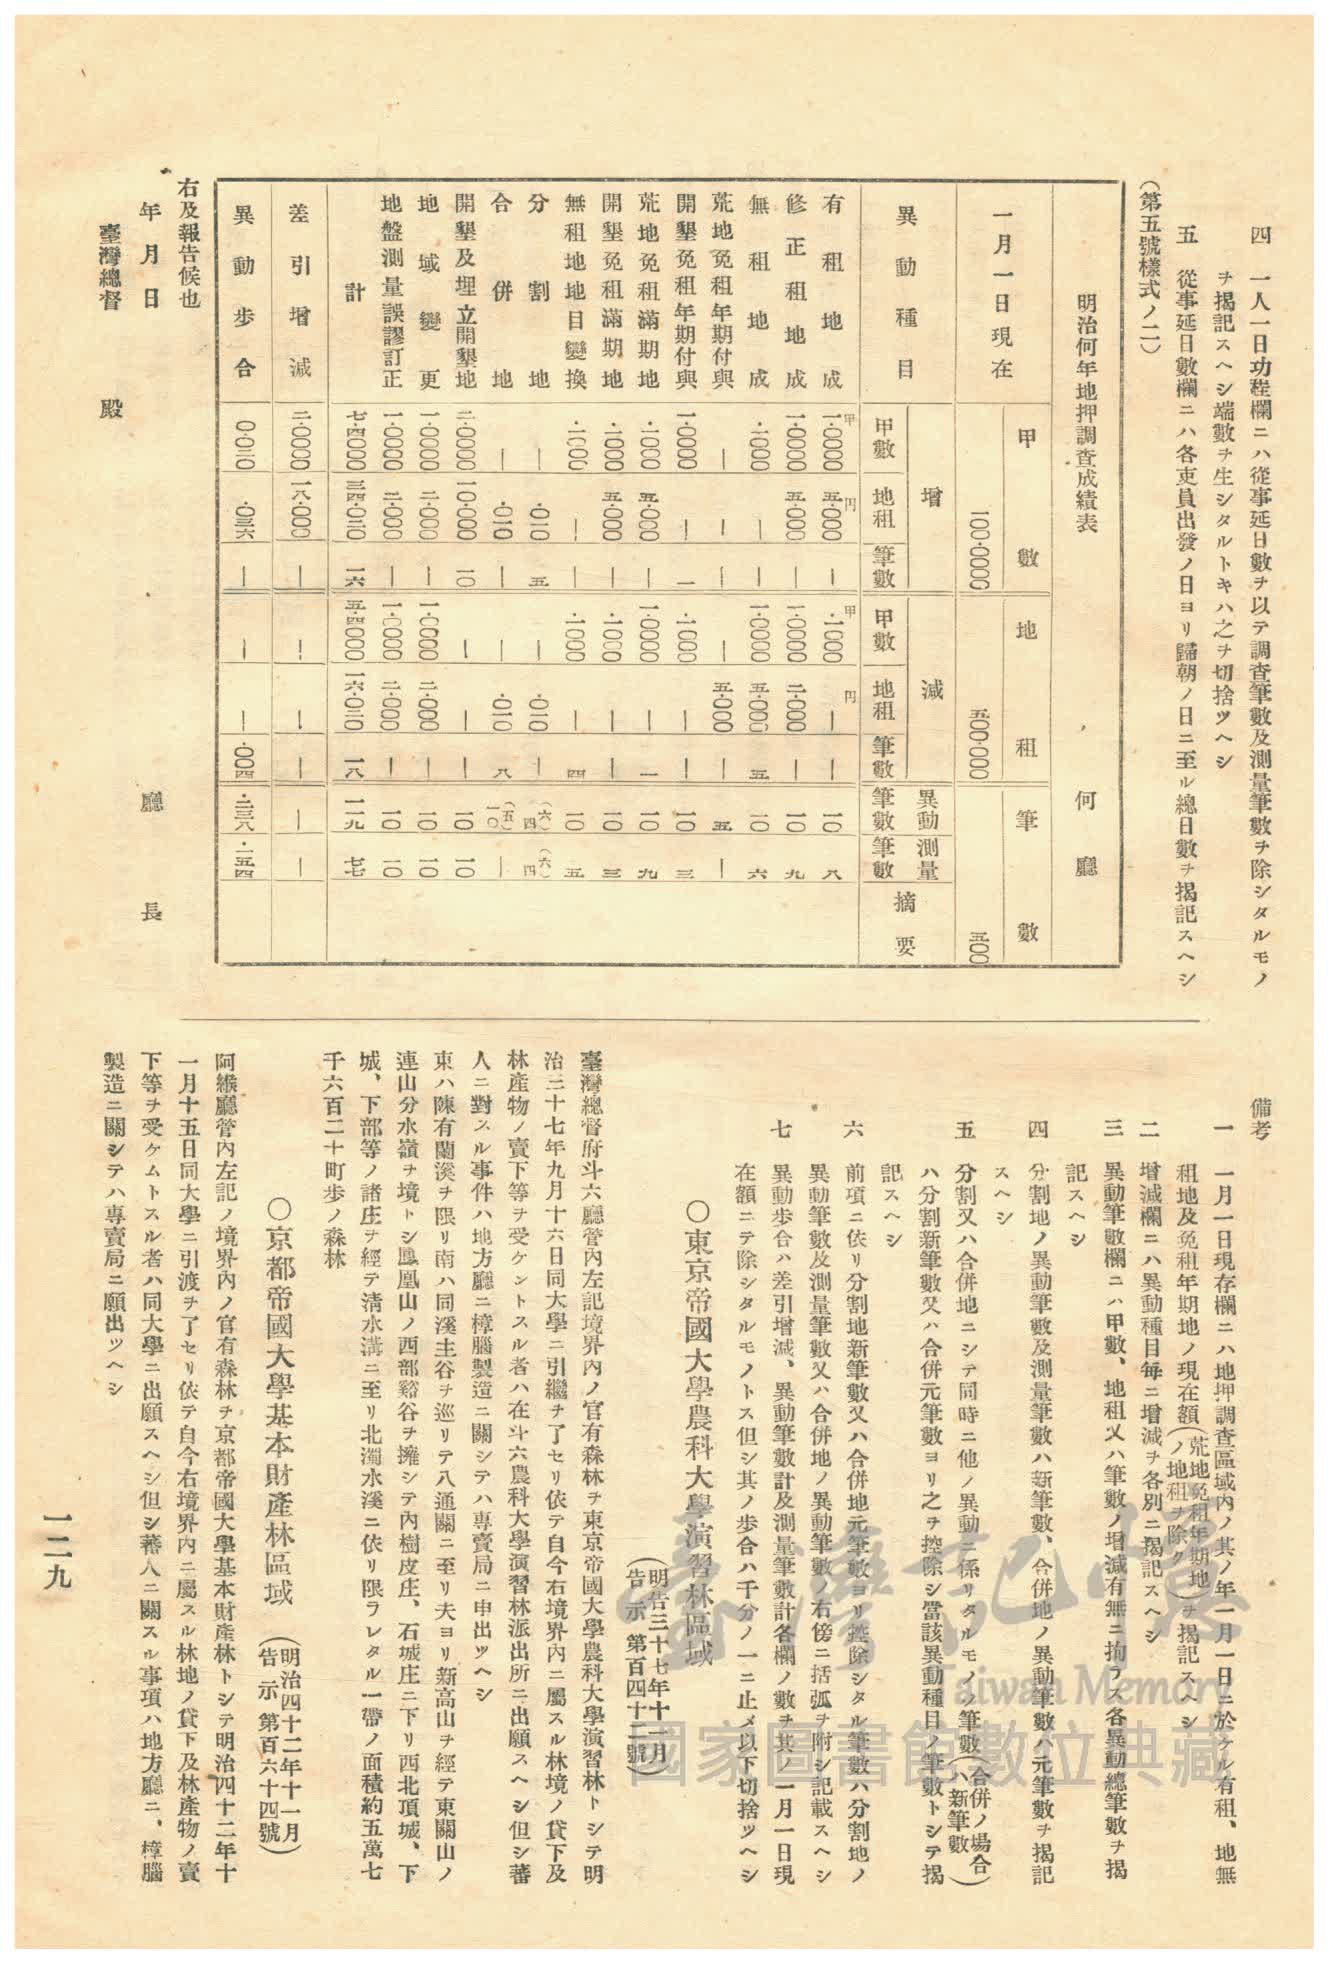 四 一人一日功程欄ニハ從事延日數ヲ以テ調査筆數及測量筆數ヲ除シタルモノ
ヲ揭記スヘシ端數ヲ生シタルトキハ之ヲ切捨ツヘシ
五 從事延日數欄ニハ各吏員出發ノ日ヨリ歸朝ノ日ニ至ル總日數ヲ揭記スヘシ
(第五號樣式ノ二)
明治何年地押調查成績表 何廳
一月一日現在 甲數 地租 筆數
100.0000 五00.000 五00
異動種目 增 減 異動筆數 測量筆數 摘要
甲數 地租 筆數 甲數 地租 筆數
有租地成 甲一.0000 円五.000 ― 甲.一000 円― ― 一0 八
修正租地成 一.0000 五.000 ― 一.0000 二.000 ― 一0 九
無租地成 .一000 ― ― 一.0000 五.000 五 一0 六
荒地免租年期付與 ― ― ― ― 五.000 ― 五 ―
開墾免租年期付與 一.0000 ― 一 .一000 ― ― 一0 三
荒地免租滿期地 .一000 五.000 ― 一.0000 ― 一 一0 九
開墾免租滿期地 .一000 五.000 ― .一000 ― ― 一0 三
無租地地目變換 .一000 ― ― .一000 ― 四 一0 五
分割地 ― .0一0 五 ― .0一0 ― (六)四 (六)四
合併地 ― .0一0 ― ― .0一0 八 (五)一0 ―
開墾及埋立開墾地 二.0000 一0.000 一0 ― ― ― 一0 一0
地域變更 一.0000 二.000 ― 一.0000 二.000 ― 一0 一0
地盤測量誤謬訂正 一.0000 二.000 ― 一.0000 二.000 ― 一0 一0
計 七.四000 三四.0二0 一六 五.四000 一六.0二0 一八 一一九 七七
差引增減 二.0000 一八.000 ― ― ― ― ― ―
異動步合 0.0二0 .0三六 ― ― ― .00四 .二三八 .一五四
右及報告候也
年月日 廳長
臺灣總督 殿
備考
一 一月一日現存欄ニハ地押調査區域內ノ其ノ年一月一日ニ於ケル有租、地無
租地及免租年期地ノ現在額(荒地免租年期地ノ地租ヲ除ク)ヲ揭記スヘシ
二 增減欄ニハ異動種目每ニ增減ヲ各別ニ揭記スヘシ
三 異動筆數欄ニハ甲數、地租又ハ筆數ノ增減有無ニ拘ラス各異動總筆數ヲ揭
記スヘシ
四 分割地ノ異動筆數及測量筆數ハ新筆數、合併地ノ異動筆數ハ元筆數ヲ揭記
スヘシ
五 分割又ハ合併地ニシテ同時ニ他ノ異動ニ係リタルモノノ筆數(合併ノ場合ハ新筆數)
ハ分割新筆數又ハ合併元筆數ヨリ之ヲ控除シ當該異動種目ノ筆數トシテ揭
記スヘシ
六 前項ニ依リ分割地新筆數又ハ合併地元筆數ヨリ控除シタル筆數ハ分割地ノ
異動筆數及測量筆數又ハ合併地ノ異動筆數ノ右傍ニ括弧ヲ附シ記載スヘシ
七 異動步合ハ差引增減、異動筆數計及測量筆數計各欄ノ數ヲ其ノ一月一日現
在額ニテ除シタルモノトス但シ其ノ步合ハ千分ノ一ニ止メ以下切捨ツヘシ
○東京帝國大學農科大學演習林區域 (明告三十七年十一月告示第百四十二號)
臺灣總督府斗六廳管內左記境界內ノ官有森林ヲ東京帝國大學農科大學演習林トシテ明
治三十七年九月十六日同大學ニ引繼ヲ了セリ依テ自今右境界內ニ屬スル林境ノ貸下及
林產物ノ賣下等ヲ受ケントスル者ハ在斗六農科大學演習林派出所ニ出願スヘシ但シ蕃
人ニ對スル事件ハ地方廳ニ樟腦製造ニ關シテハ專賣局ニ申出ツヘシ
東ハ陳有蘭溪ヲ限リ南ハ同溪主谷ヲ巡リテ八通關ニ至リ夫ヨリ新高山ヲ經テ東關山ノ
連山分水嶺ヲ境トシ鳳凰山ノ西部谿谷ヲ擁シテ內樹皮庄、石城庄ニ下リ西北頂城、下
城、下部等ノ諸庄ヲ經テ清水溝ニ至リ北濁水溪ニ依リ限ラレタル一帶ノ面積約五萬七
千六百二十町步ノ森林
○京都帝國大學基本財產林區域 (明治四十二年十一月告示第百六十四號)
阿緱廳管內左記ノ境界內ノ官有森林ヲ京都帝國大學基本財產林トシテ明治四十二年十
一月十五日同大學ニ引渡ヲ了セリ依テ自今右境界內ニ屬スル林地ノ貸下及林產物ノ賣
下等ヲ受ケムトスル者ハ同大學ニ出願スヘシ但シ蕃人ニ關スル事項ハ地方廳ニ、樟腦
製造ニ關シテハ專賣局ニ願出ツヘシ
一二九
臺灣記憶
Taiwan Memory
國家圖書館數位典藏